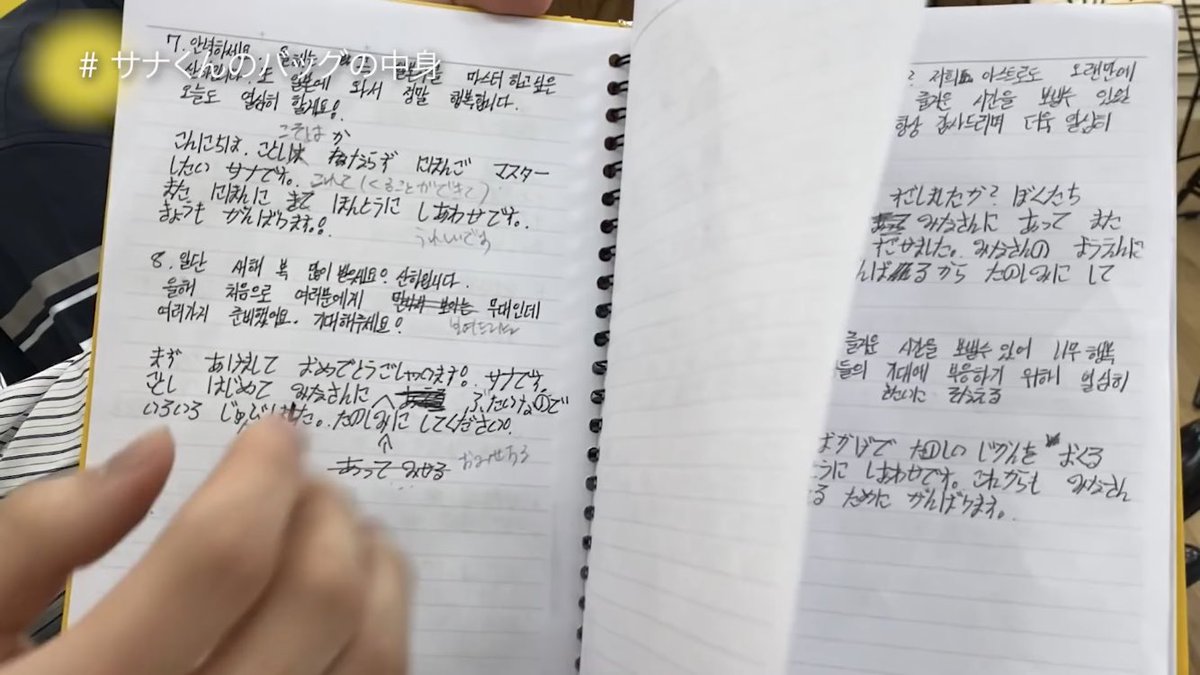 # サナくんのバッグの中身
7. 안녕하세요. 올해는 마스터 하고 싶은
일본에 와서 정말 행복합니다.
오늘도 열심히 할게요!
こそは か
こんにちは、ことしは にほんご マスター
したい サナです。これて(くることができて)
また にほんに きて ほんとうに しあわせです。
きょうも がんばります!
うれしいです
8. 일단 새해 복 많이 받으세요! 산하입니다.
올해 처음으로 여러분에게 무대인데
여러가지 준비했어요. 기대해주세요!
보여드리는
まず あけまして おめでとうございます。サナです。
ことし はじめて みなさんに ぶたいなので
いろいろ じゅんびしました。たのしみに してください。
あって みせる
おみせする
? 저희 아스트로도 오랜만에
즐거운 시간을 보낼수 있었
항상 감사드리며 더욱 열심히
しましたか? ぼくたち
みなさんに あって また
だせました。みなさんの ように
るから たのしみに して
즐거운 시간을 보낼수 있어 너무 행복
들의 기대에 부응하기 위해 열심히
たのしい じかんを おくる
うに しあわせです。これからも みなさん
る ために がんばります。